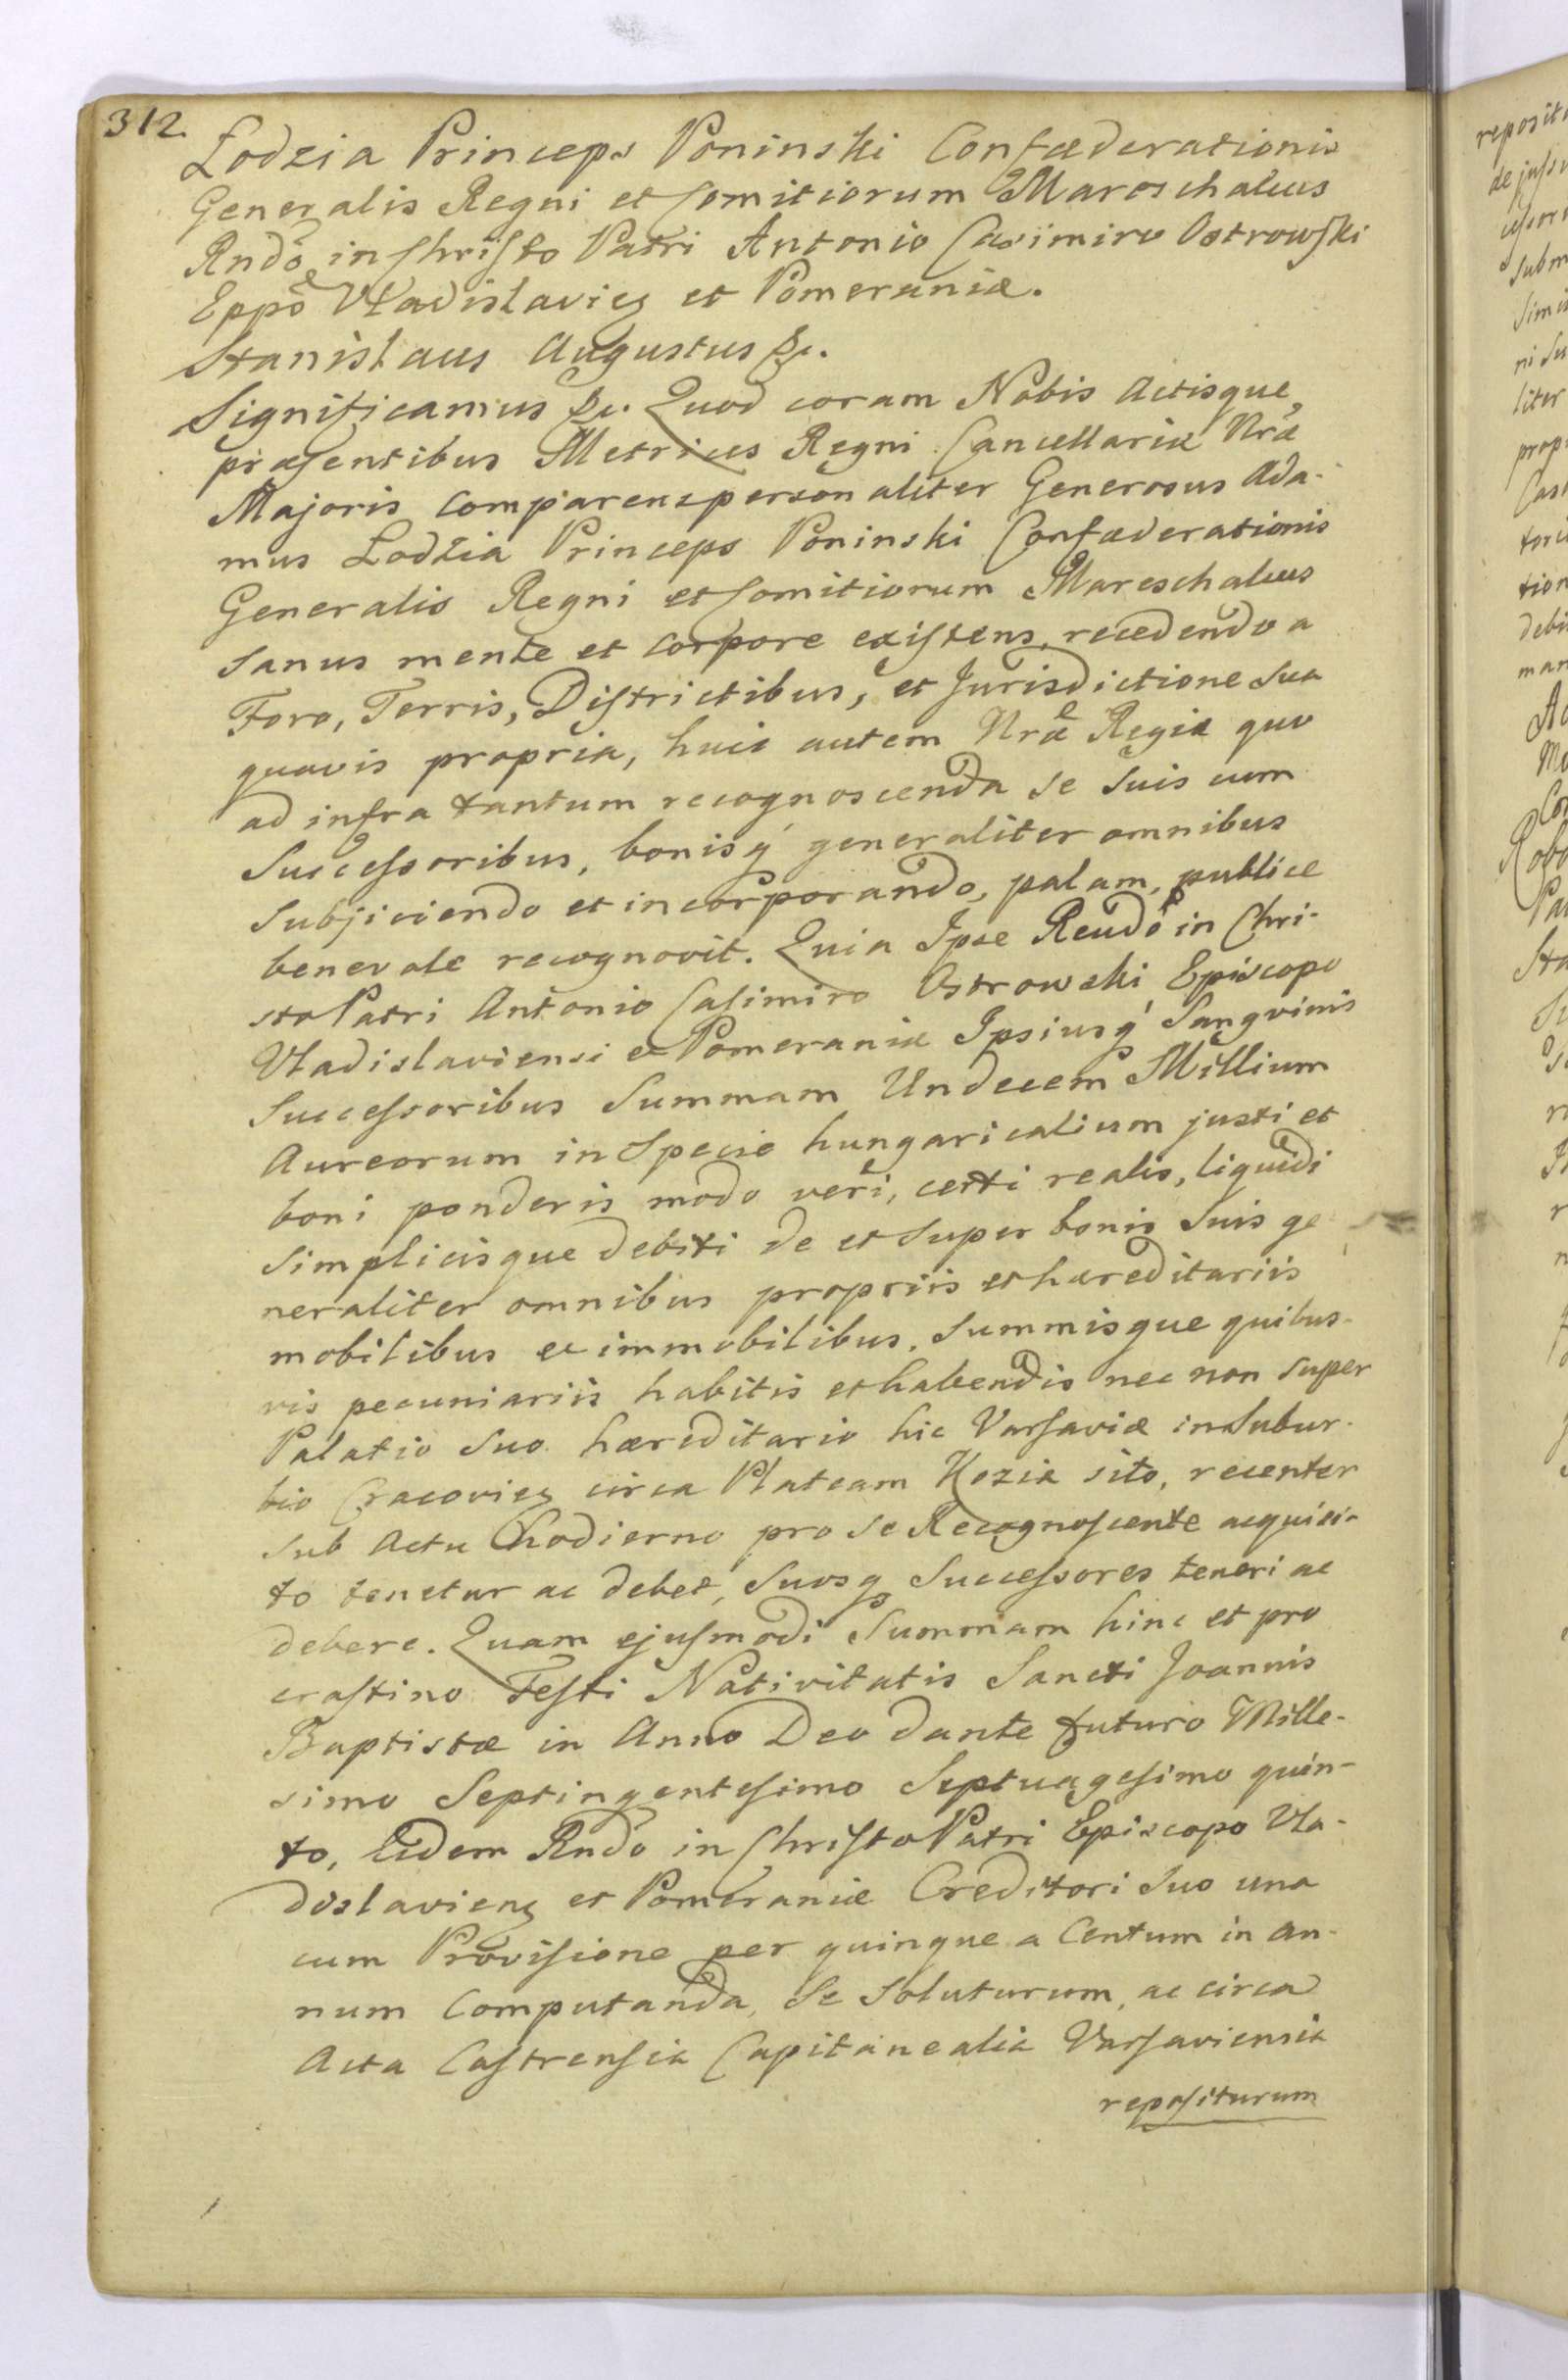 312.
Lodzia Princeps Poninski Confæderationis
Generalis Regni et Comitiorum Mareschalcus
Rndo in Christo Patri Antonio Casimiro Ostrowski
Eppo Vladislavien et Pomeraniæ.
Stanislaus Augustus &c.
Significamus &c. Quod coram Nobis Actisque
præsentibus Metrices Regni Cancellariæ Nræ
Majoris comparens personaliter Generosus Ada-
mus Lodzia Princeps Poninski Confæderationis
Generalis Regni et Comitiorum Mareschalcus
sanus mente et corpore existens, recedendo a
Foro, Terris, Districtibus, et Jurisdictione sua
quavis propria, huic autem Nræ Regiæ quo
ad infra tantum recognoscenda se suis cum
Successoribus, bonisq generaliter omnibus
subjiciendo et incorporando, palam, publice
benevole recognovit. Quia Ipse Rendo in Chri-
sto Patri Antonio Casimiro Ostrowski Episcopo
Vladislaviensi et Pomeraniæ Ipsiusq Sangvinis
Successoribus Summam Undecem Millium
Aureorum in Specie hungaricalium justi et
boni ponderis modo veri, certi realis, liquidi
simplicisque debiti de et super bonis suis ge
neraliter omnibus propriis et hæreditariis
mobilibus et immobilibus, summisque quibus-
vis pecuniariis habitis et habendis nec non super
Palatio suo hæreditario hic Varsaviæ in Subur-
bio Cracovien circa Plateam Kozia sito, recenter
sub Actu hodierno pro se Recognoscente acquisi-
to tenetur ac debet, suosq Successores teneri ac
debere. Quam ejusmodi Summam hinc et pro
crastino Festi Nativitatis Sancti Joannis
Baptistæ in Anno Deo dante futuro Mille-
simo Septingentesimo Septuagesimo quin-
to, Eidem Rndo in Christo Patri Episcopo Vla-
dislavien et Pomeraniæ Creditori suo una
cum Provisione per quinque a Centum in an-
num computanda, se soluturum, ac circa
Acta Castrensia Capitanealia Varsaviensia
repositurum